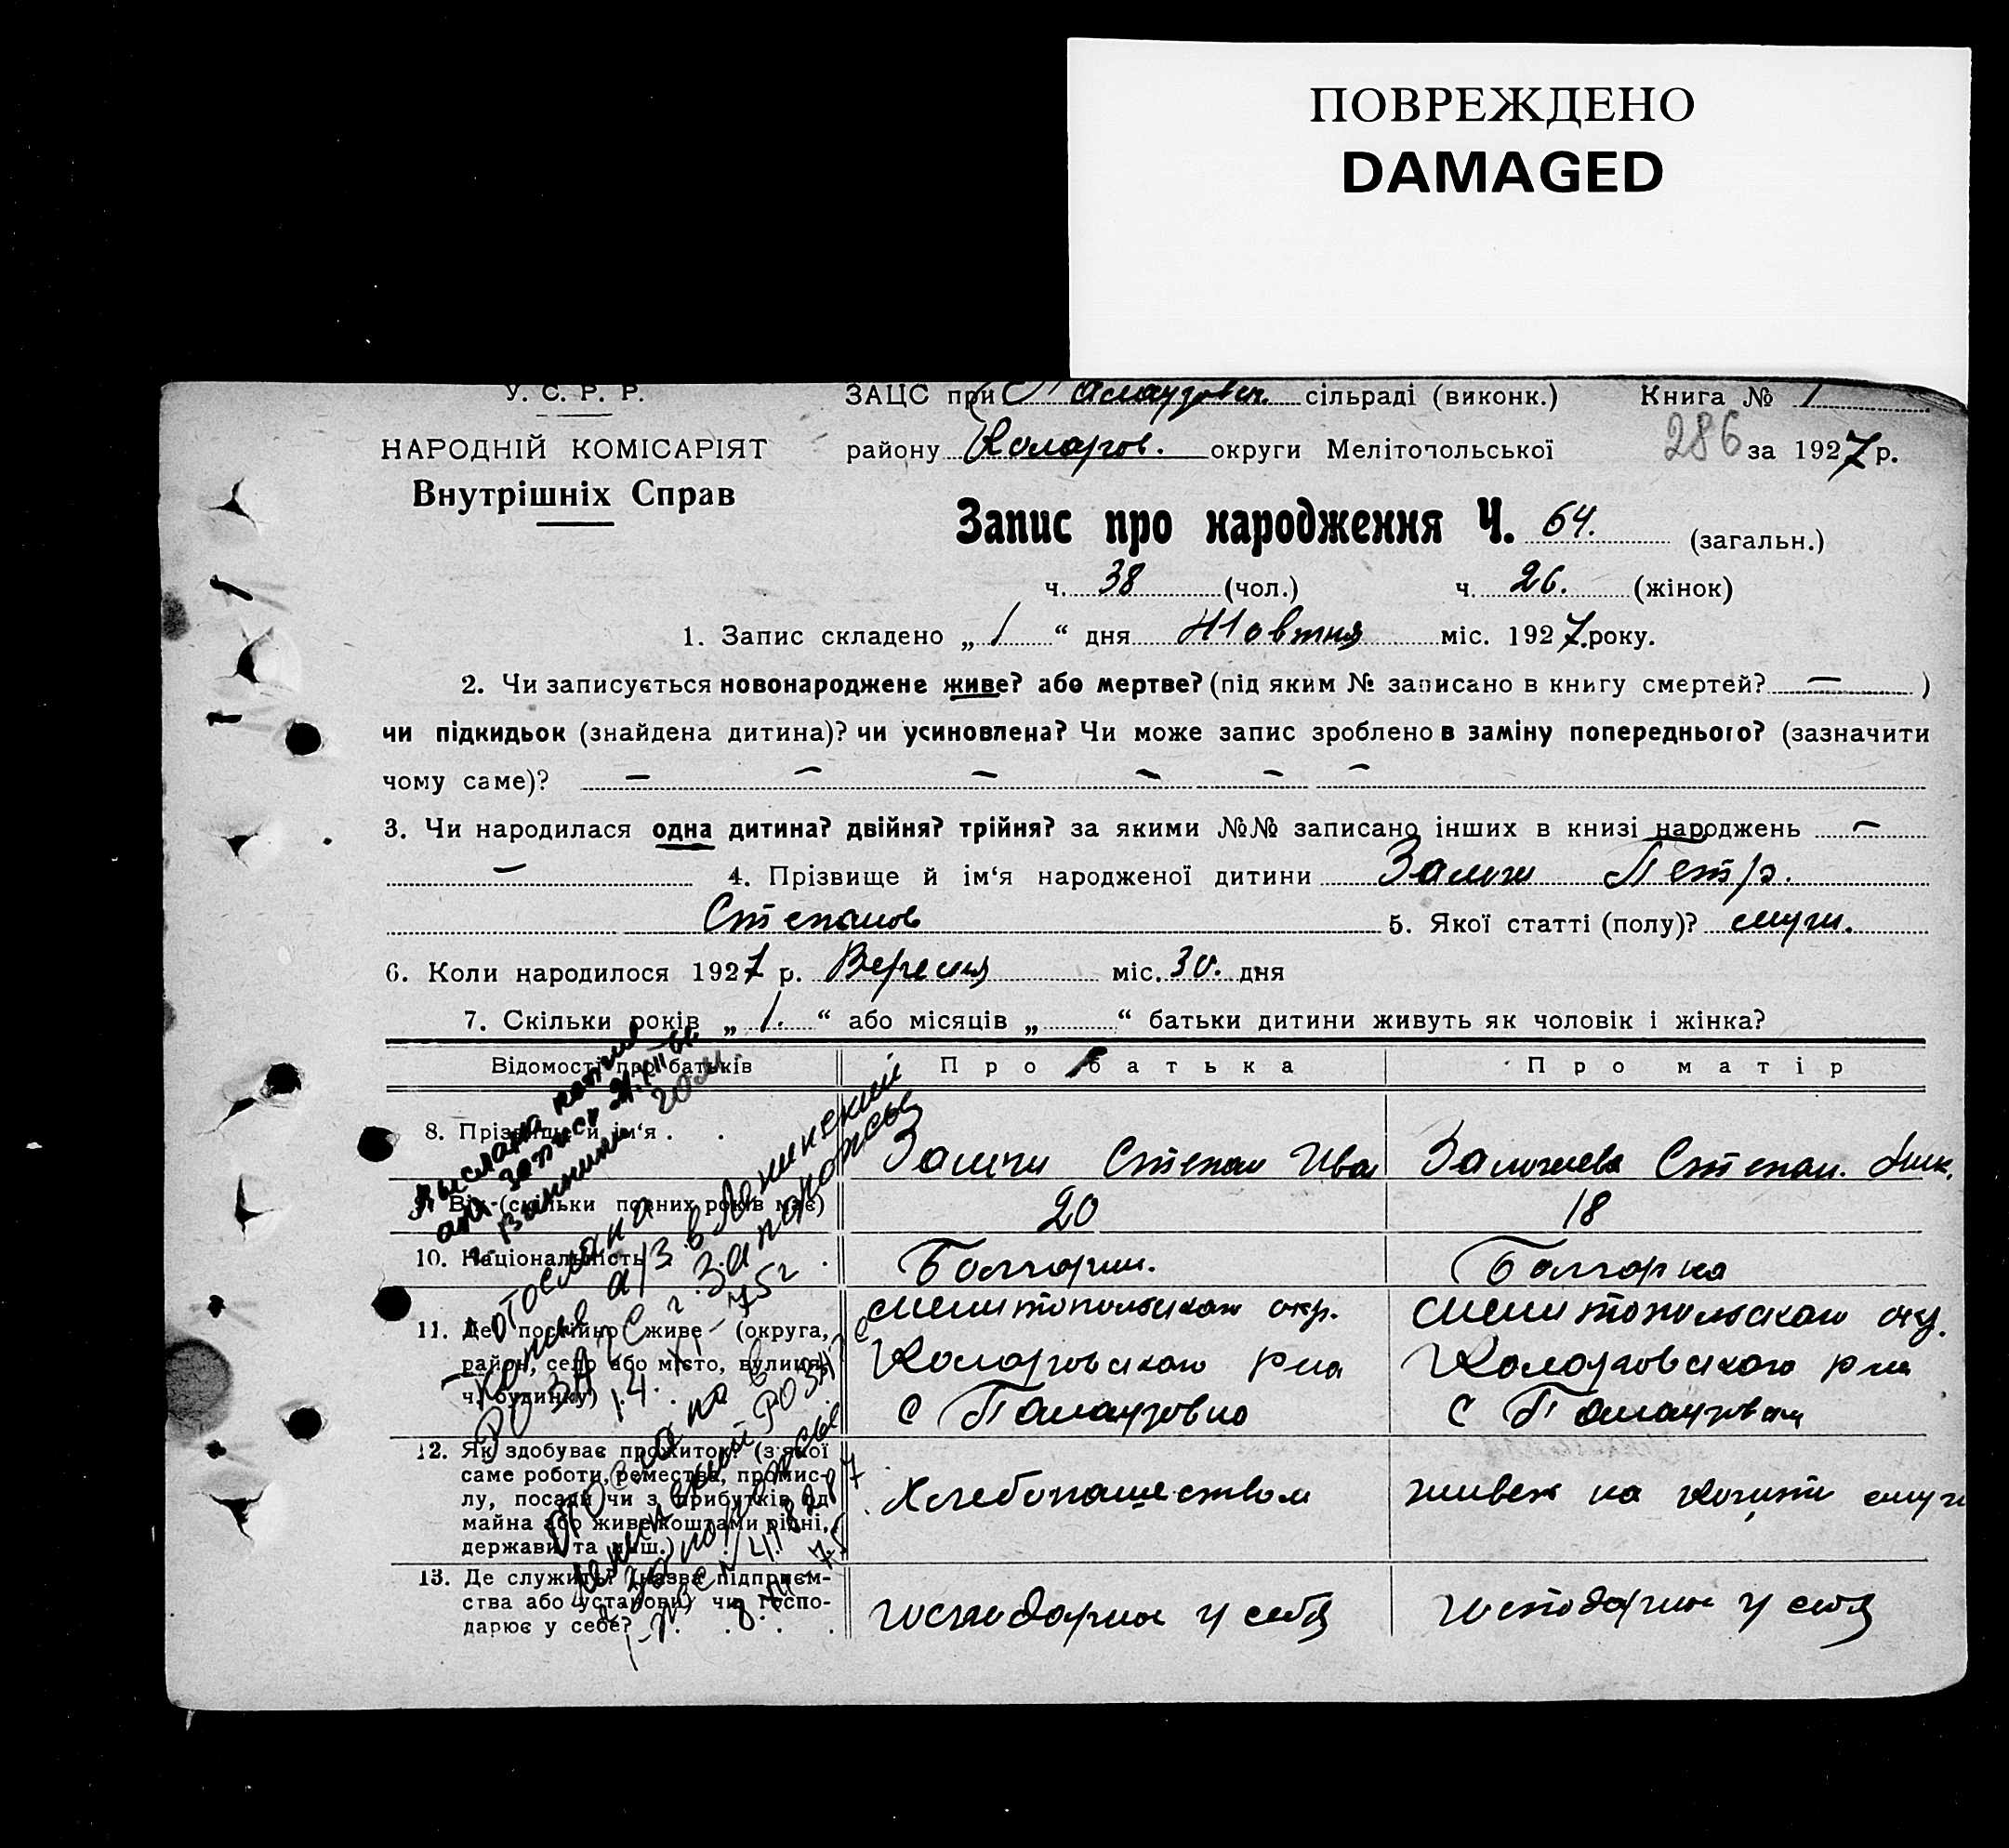 ПОВРЕЖДЕНО
DAMAGED
У. С. Р. Р.
ЗАЦС при сільраді (виконк.) Книга № 1
НАРОДНІЙ КОМІСАРІЯТ
району Коларов. округи Мелітопольської 286 за 1927 р.
Внутрішніх Справ
Запис про народження Ч. 64. (загальн.)
ч. 38 (чол.) ч. 26. (жінок)
1. Запис складено „ 1 “ дня Жовтня міс. 1927 року.
2. Чи записується новонароджене живе? або мертве? (під яким № записано в книгу смертей? — )
чи підкидьок (знайдена дитина)? чи усиновлена? Чи може запис зроблено в заміну попереднього? (зазначити
чому саме)? — — — — — —
3. Чи народилася одна дитина? двійня? трійня? за якими №№ записано інших в книзі народжень —
— 4. Прізвище й ім‘я народженої дитини Петр.
Степанов 5. Якої статті (полу)? муж.
6. Коли народилося 1927 р. Вересня міс. 30. дня
7. Скільки років „ 1. “ або місяців „ “ батьки дитини живуть як чоловік і жінка?
Відомості про батьків Про батька Про матір
8. Прізвище й ім‘я . . Степан Иван Степан.
9. Вік (скільки повних років має) 20 18
10. Національність Болгарин. Болгарка
11. Де постійно живе (округа,
район, село або місто, вулиця,
ч. будинку)
Мелитопольскаго окр. Мелитопольскаго
Коларовскаго р на Коларовскаго р на
с с
12. Як здобуває прожиток? (з якої
саме роботи, ремества, промис-
лу, посади чи з прибутків од
майна або живе коштами рідні,
держави та инш.)
Хлебопашеством на
13. Де служить? (назва підприєм-
ства або установи) чи госпо-
дарює у себе?
господарює у себя господарює у себя
выслана копия
акт запись
г. Винники
отослана
копия а/з в Ленинский
РО ЗАГС г. Запорожье
14. XI – 75 г
Ленинский РОЗАГС
г. Запорожье